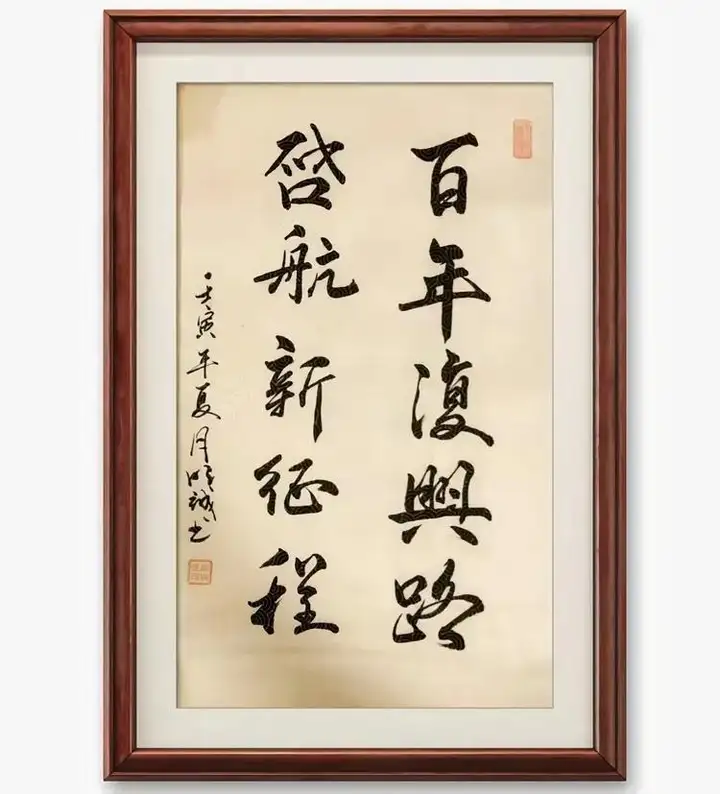 百年復興路
啓航新征程
壬寅年夏月明誠书